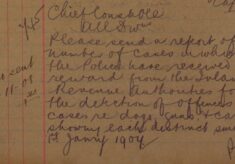 Chief Constable
All Divns
Please send a report of
number of cases in which
the Police have received
reward from the Inland
Revenue Authorities for
the detection of offences
cases re dogs, guns &
showing each district since
1st Janry 1904